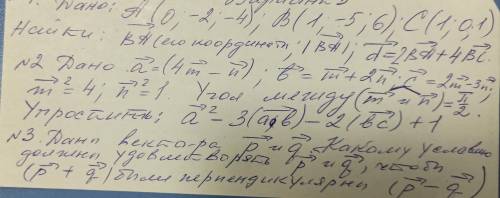 1. Дано: A(0, -2, -4); B(1; -5; 6); C(1; 0; 1)
Найти: BA⃗ (его координаты; |BA⃗|; d⃗ = 2BA⃗ + 4BC⃗.
№2 Дано a⃗ = (4m⃗ - n⃗); b⃗ = m⃗ + 2n⃗; c⃗ = 2m⃗ - 3n⃗;
m⃗² = 4; n⃗² = 1. Угол между (m⃗ и n⃗) = π/2.
Упростить: a⃗² - 3(a⃗b⃗) - 2(b⃗c⃗) + 1
№3. Даны вектора p⃗ и q⃗. Какому условию
должны удовлетворять p⃗ и q⃗, чтобы
(p⃗ + q⃗) были перпендикулярны (p⃗ - q⃗)